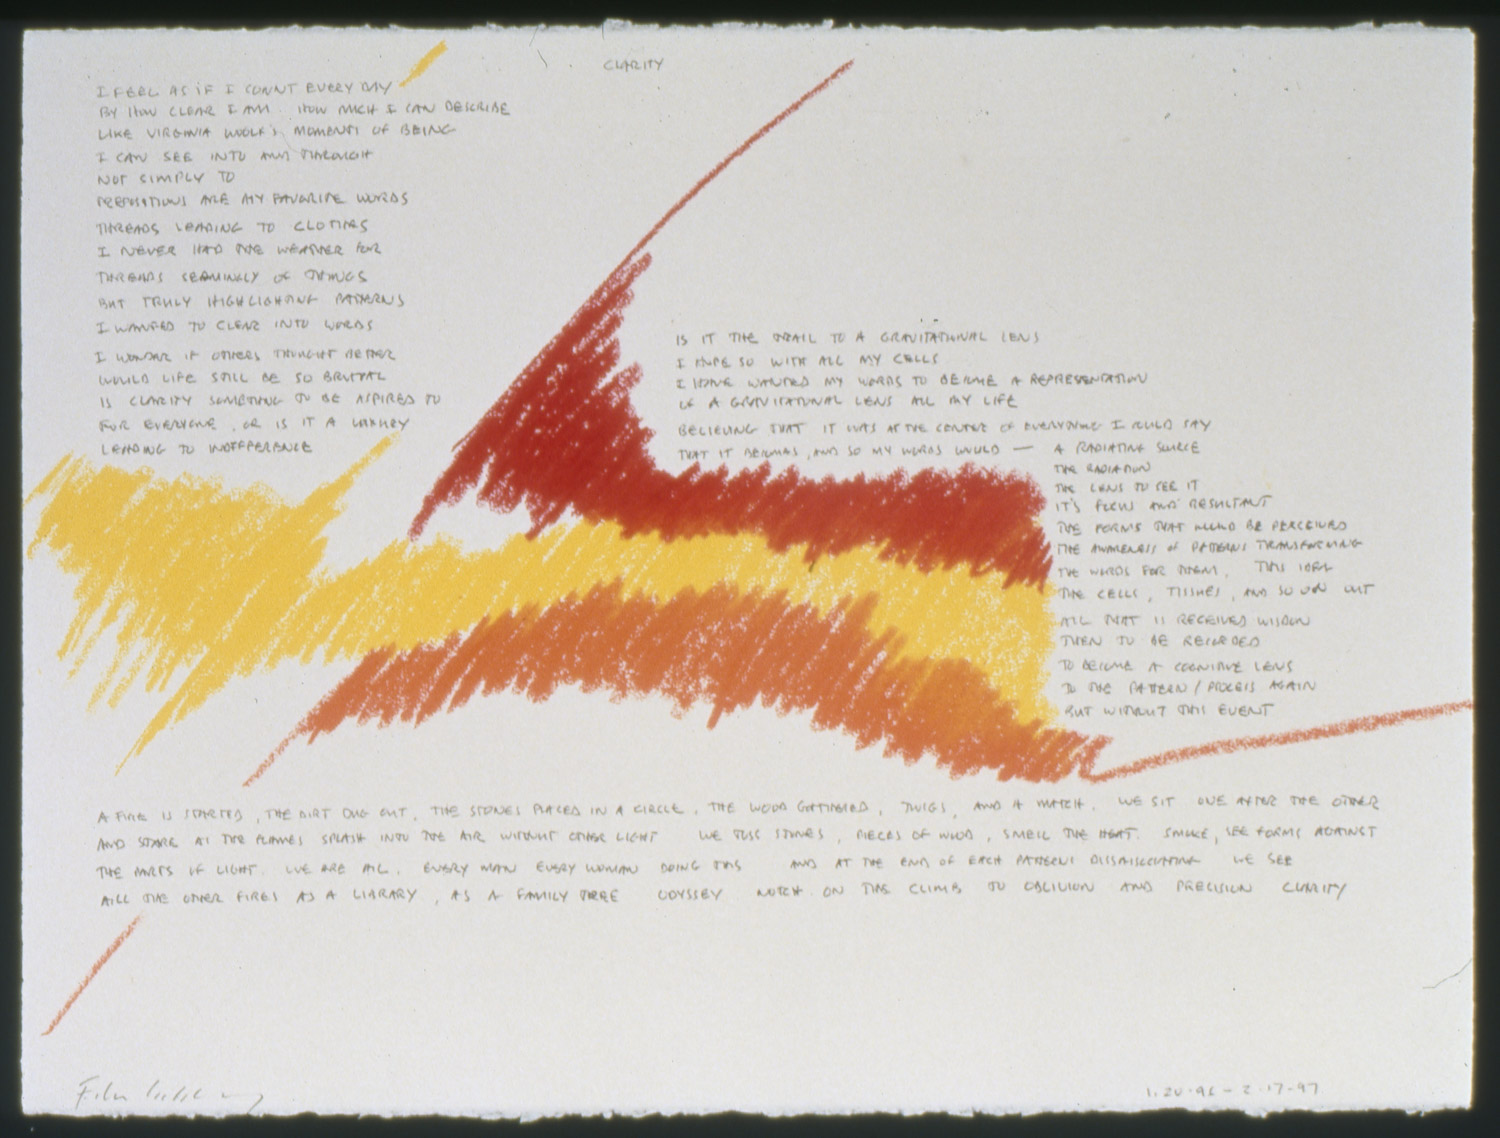 CLARITY
I FEEL AS IF I COUNT EVERY DAY
BY HOW CLEAR I AM. HOW MUCH I CAN DESCRIBE
LIKE VIRGINIA WOOLF'S MOMENTS OF BEING
I CAN SEE INTO AND THROUGH
NOT SIMPLY TO
PREPOSITIONS ARE MY FAVORITE WORDS
THREADS LEADING TO CLOTHES
I NEVER HAD THE WEATHER FOR
THREADS SEEMINGLY OF THINGS
BUT TRULY HIGHLIGHTING PATTERNS
I WANTED TO CLEAR INTO WORDS
I WONDER IF OTHERS THOUGHT BETTER
WOULD LIFE STILL BE SO BRUTAL
IS CLARITY SOMETHING TO BE ASPIRED TO
FOR EVERYONE, OR IS IT A LUXURY
LEADING TO INDIFFERENCE
IS IT THE TRAIL TO A GRAVITATIONAL LENS
I HOPE SO WITH ALL MY CELLS
I HAVE WANTED MY WORDS TO BECOME A REPRESENTATION
OF A GRAVITATIONAL LENS ALL MY LIFE
BELIEVING THAT IT WAS AT THE CENTER OF EVERYTHING I COULD SAY
THAT IT BECOMES, AND SO MY WORDS WOULD — A RADIATING SOURCE
THE RADIATION
THE LENS TO SEE IT
IT'S FLOW AND RESULTANT
THE FORMS THAT WOULD BE PERCEIVED
THE AWARENESS OF PATTERNS TRANSFORMING
THE WORDS FOR THEM, THIS IDEA
THE CELLS, TISSUES, AND SO ON OUT
ALL THAT IS RECEIVED WISDOM
THEN TO BE RECORDED
TO BECOME A COGNITIVE LENS
TO THE PATTERN / PROCESS AGAIN
BUT WITHOUT THIS EVENT
A FIRE IS STARTED, THE DIRT DUG OUT, THE STONES PLACED IN A CIRCLE, THE WOOD GATHERED, TWIGS, AND A MATCH. WE SIT ONE AFTER THE OTHER
AND STARE AT THE FLAMES SPLASH INTO THE AIR WITHOUT OTHER LIGHT WE TOSS STONES, PIECES OF WOOD, SMELL THE HEAT. SMOKE, SEE FORMS AGAINST
THE PARTS OF LIGHT. WE ARE ALL. EVERY MAN EVERY WOMAN DOING THIS AND AT THE END OF EACH PATTERNS WE SEE
ALL THE OTHER FIRES AS A LIBRARY, AS A FAMILY TREE ODYSSEY NOTCH ON THE CLIMB TO OBLIVION AND PRECISION CLARITY
2-17-97